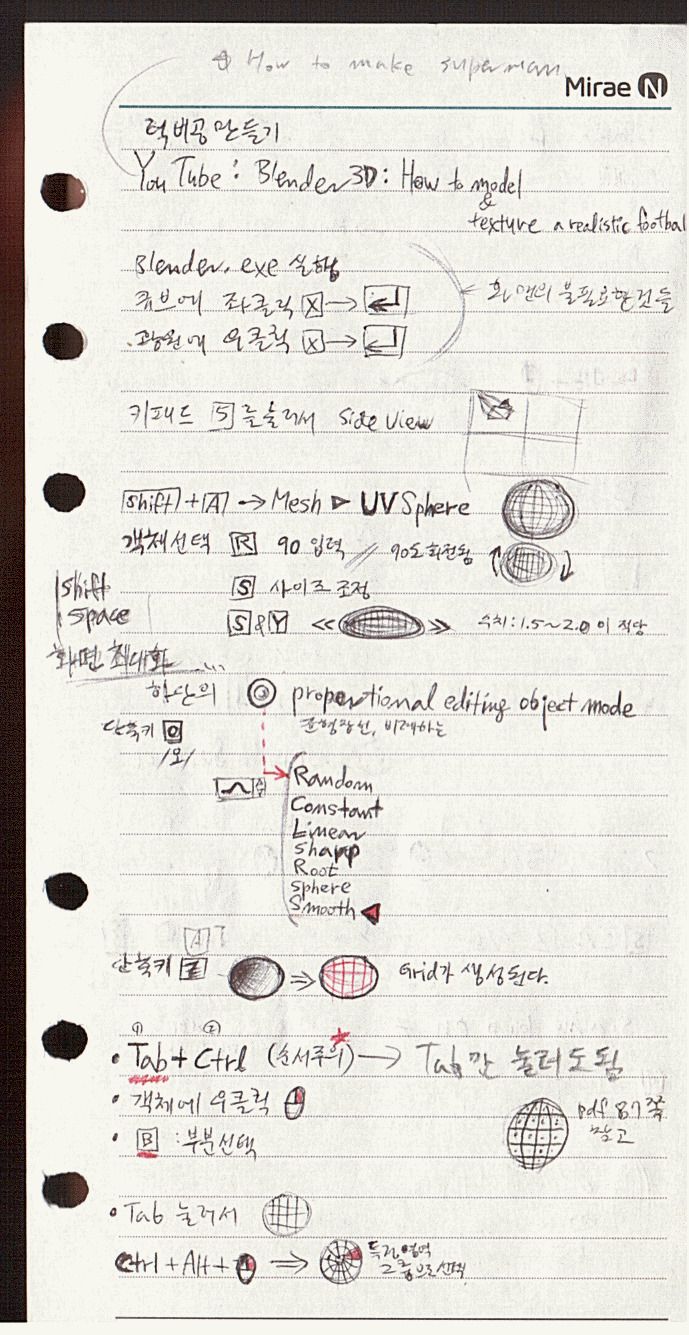 How to make superman
Mirae N
럭비공 만들기
YouTube : Blender 3D : How to model
&
texture a realistic footbal
Blender.exe 실행
큐브에 좌클릭 X → ↵
광원에 우클릭 X → ↵
화면의 불필요한 것들
키패드 5 를 눌러서 side view
shift + A → Mesh ▷ UV Sphere
객체선택 R 90 입력 // 90도 회전됨
shift
space
화면 최대화 ...
S 사이즈 조정
S & Y << >> 수치 : 1.5~2.0 이 적당
하단의 ◎ proportional editing object mode
균형잡힌, 비례하는
단축키 O
/오/
Random
Constant
Linear
sharp
Root
sphere
Smooth
A
단축키 Z ⇒ Grid가 생성된다.
① ②
• Tab + Ctrl (순서주의) → Tab만 눌러도 됨
• 객체에 우클릭
• B : 부분선택
pdf 87쪽
참고
• Tab 눌러서
Ctrl + Alt + ⇒ 특정영역
그룹으로 선택